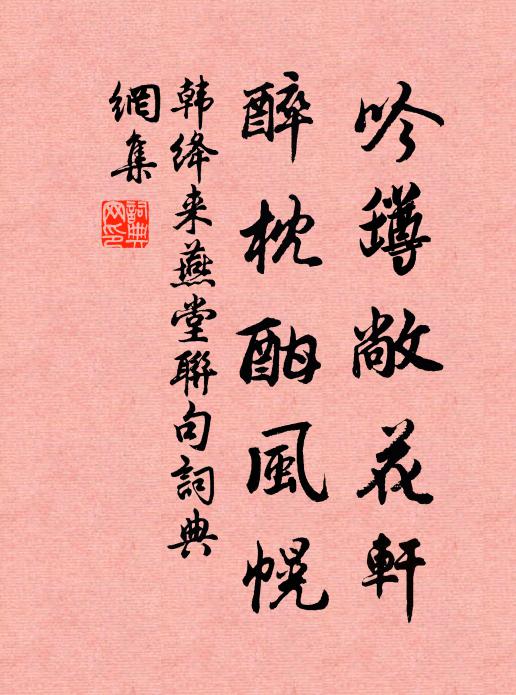 吟罇敞花軒
醉枕酣風幌
韩绛来燕堂聯句詞典
網集
詞典
网印